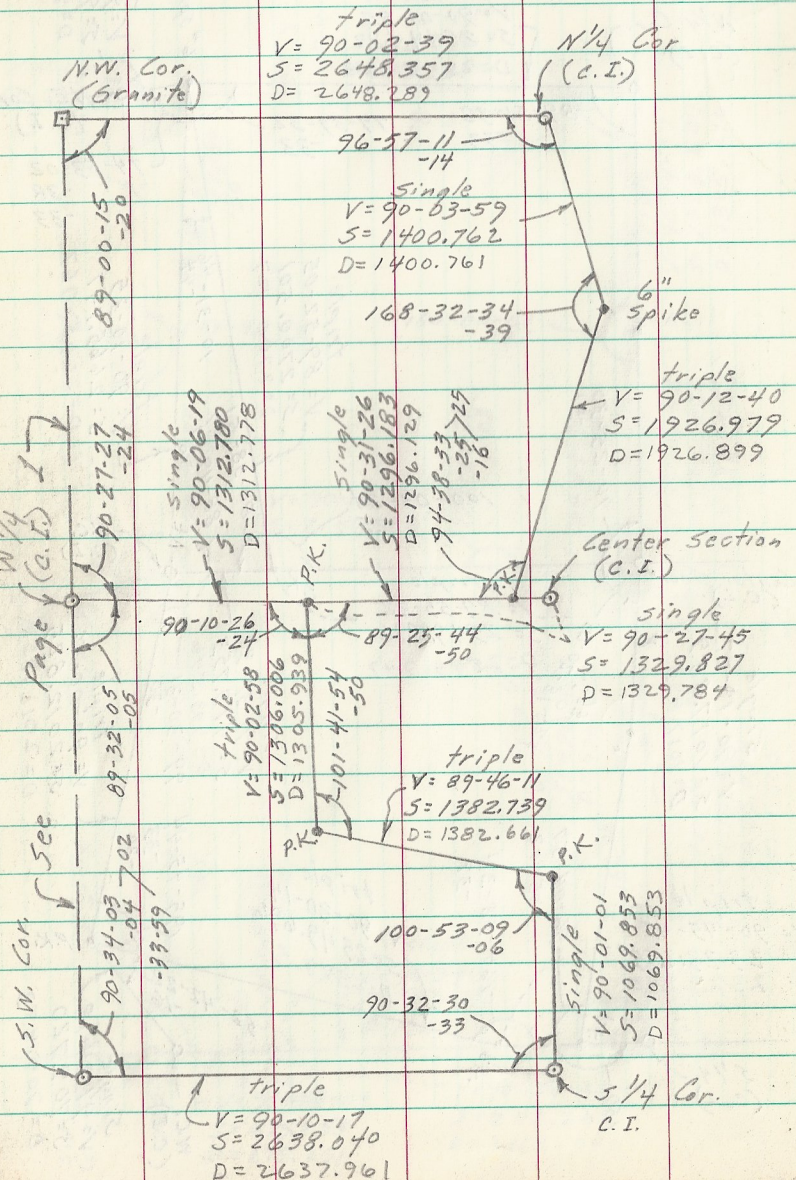 triple
V = 90-02-39
S = 2648.357
D = 2648.289
N.W. Cor.
(Granite)
N 1/4 Cor
(C.I.)
96-57-11
-14
89-00-15
-20
Single
V = 90-03-59
S = 1400.762
D = 1400.761
168-32-34
-39
6"
Spike
triple
V = 90-12-40
S = 1926.979
D = 1926.899
90-27-27
-24
single
V = 90-06-19
S = 1312.780
D = 1312.778
Single
V = 90-31-26
S = 1296.183
D = 1296.129
94-38-33
-25 25
-16
W 1/4
(C.I.)
See Page 1
P.K.
P.K.
Center Section
(C.I.)
90-10-26
-24
89-25-44
-50
single
V = 90-27-45
S = 1329.827
D = 1329.784
89-32-05
-05
triple
V = 90-02-58
S = 1306.006
D = 1305.939
101-41-54
-50
triple
V = 89-46-11
S = 1382.739
D = 1382.661
P.K.
P.K.
90-34-03
-04 02
-33-59
100-53-09
-06
Single
V = 90-01-01
S = 1069.853
D = 1069.853
90-32-30
-33
S.W. Cor.
triple
V = 90-10-17
S = 2638.040
D = 2637.961
S 1/4 Cor.
C.I.